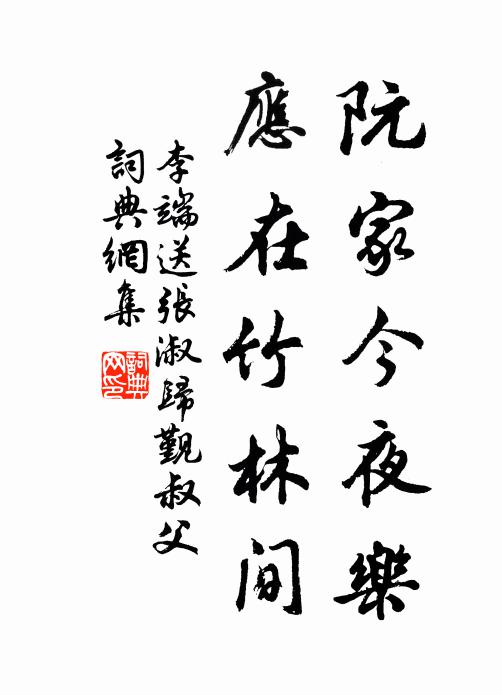 阮家今夜樂
應在竹林間
李端送張淑歸覲叔父
詞典網集
詞典網印